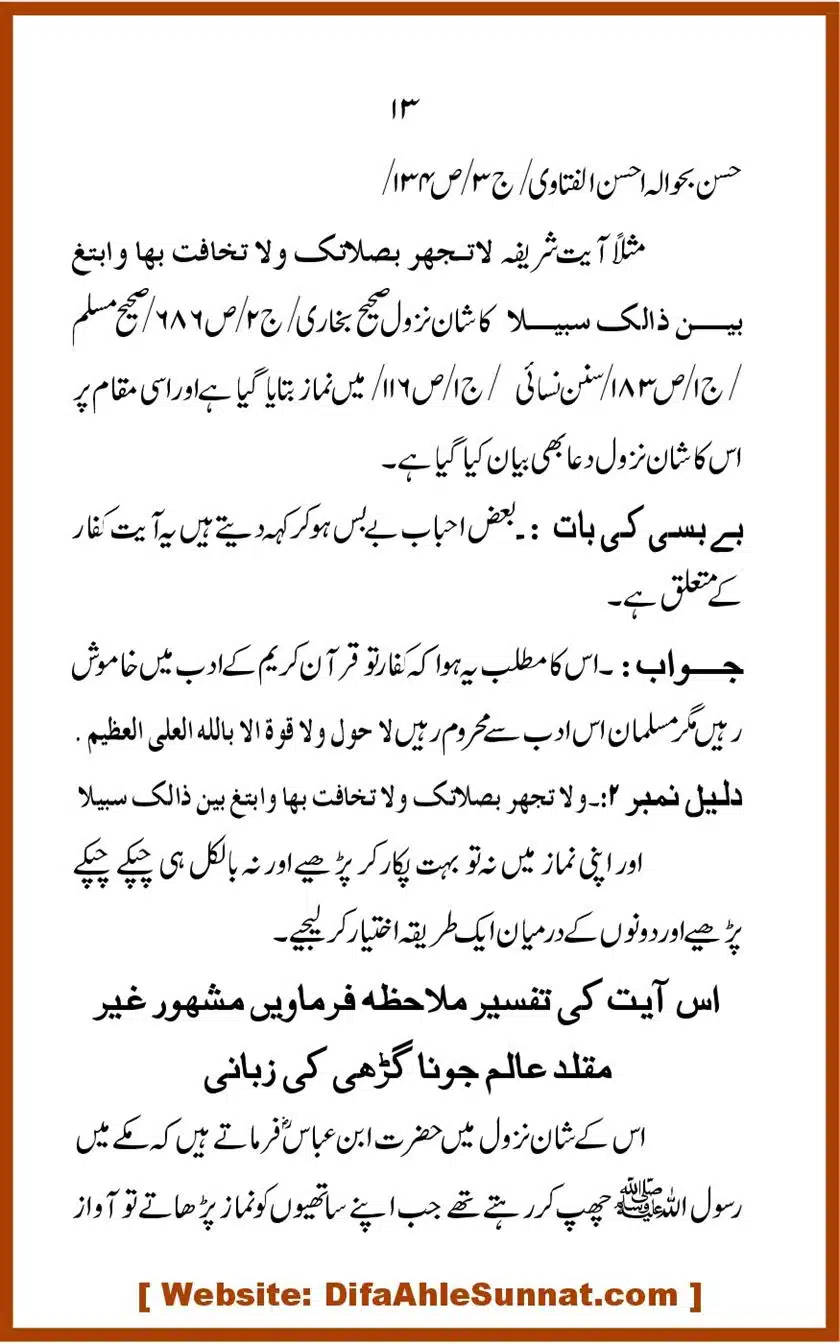 ۱۳
حسن بحوالہ احسن الفتاوی/ ج۳/ص۱۳۴/
مثلاً آیت شریفہ لاتجهر بصلاتک ولا تخافت بها وابتغ
بین ذالک سبیلا کا شان نزول صحیح بخاری/ ج۲/ص۶۸۶/صحیح مسلم
/ ج۱/ص۱۸۳/سنن نسائی / ج۱/ص۱۱۶/ میں نماز بتایا گیا ہے اور اسی مقام پر
اس کا شان نزول دعا بھی بیان کیا گیا ہے۔
بے بسی کی بات :۔ بعض احباب بے بس ہو کر کہہ دیتے ہیں یہ آیت کفار
کے متعلق ہے۔
جواب: ۔اس کا مطلب یہ ہوا کہ کفار تو قرآن کریم کے ادب میں خاموش
رہیں مگر مسلمان اس ادب سے محروم رہیں لا حول ولا قوة الا بالله العلی العظیم .
دلیل نمبر ۲:۔ولا تجهر بصلاتک ولا تخافت بها وابتغ بین ذالک سبیلا
اور اپنی نماز میں نہ تو بہت پکار کر پڑھیے اور نہ بالکل ہی چپکے چپکے
پڑھیے اور دونوں کے درمیان ایک طریقہ اختیار کر لیجیے۔
اس آیت کی تفسیر ملاحظہ فرماویں مشہور غیر
مقلد عالم جونا گڑھی کی زبانی
اس کے شان نزول میں حضرت ابن عباسؓ فرماتے ہیں کہ مکے میں
رسول اللہ ﷺ چھپ کر رہتے تھے جب اپنے ساتھیوں کو نماز پڑھاتے تو آواز
[ Website: DifaAhleSunnat.com ]